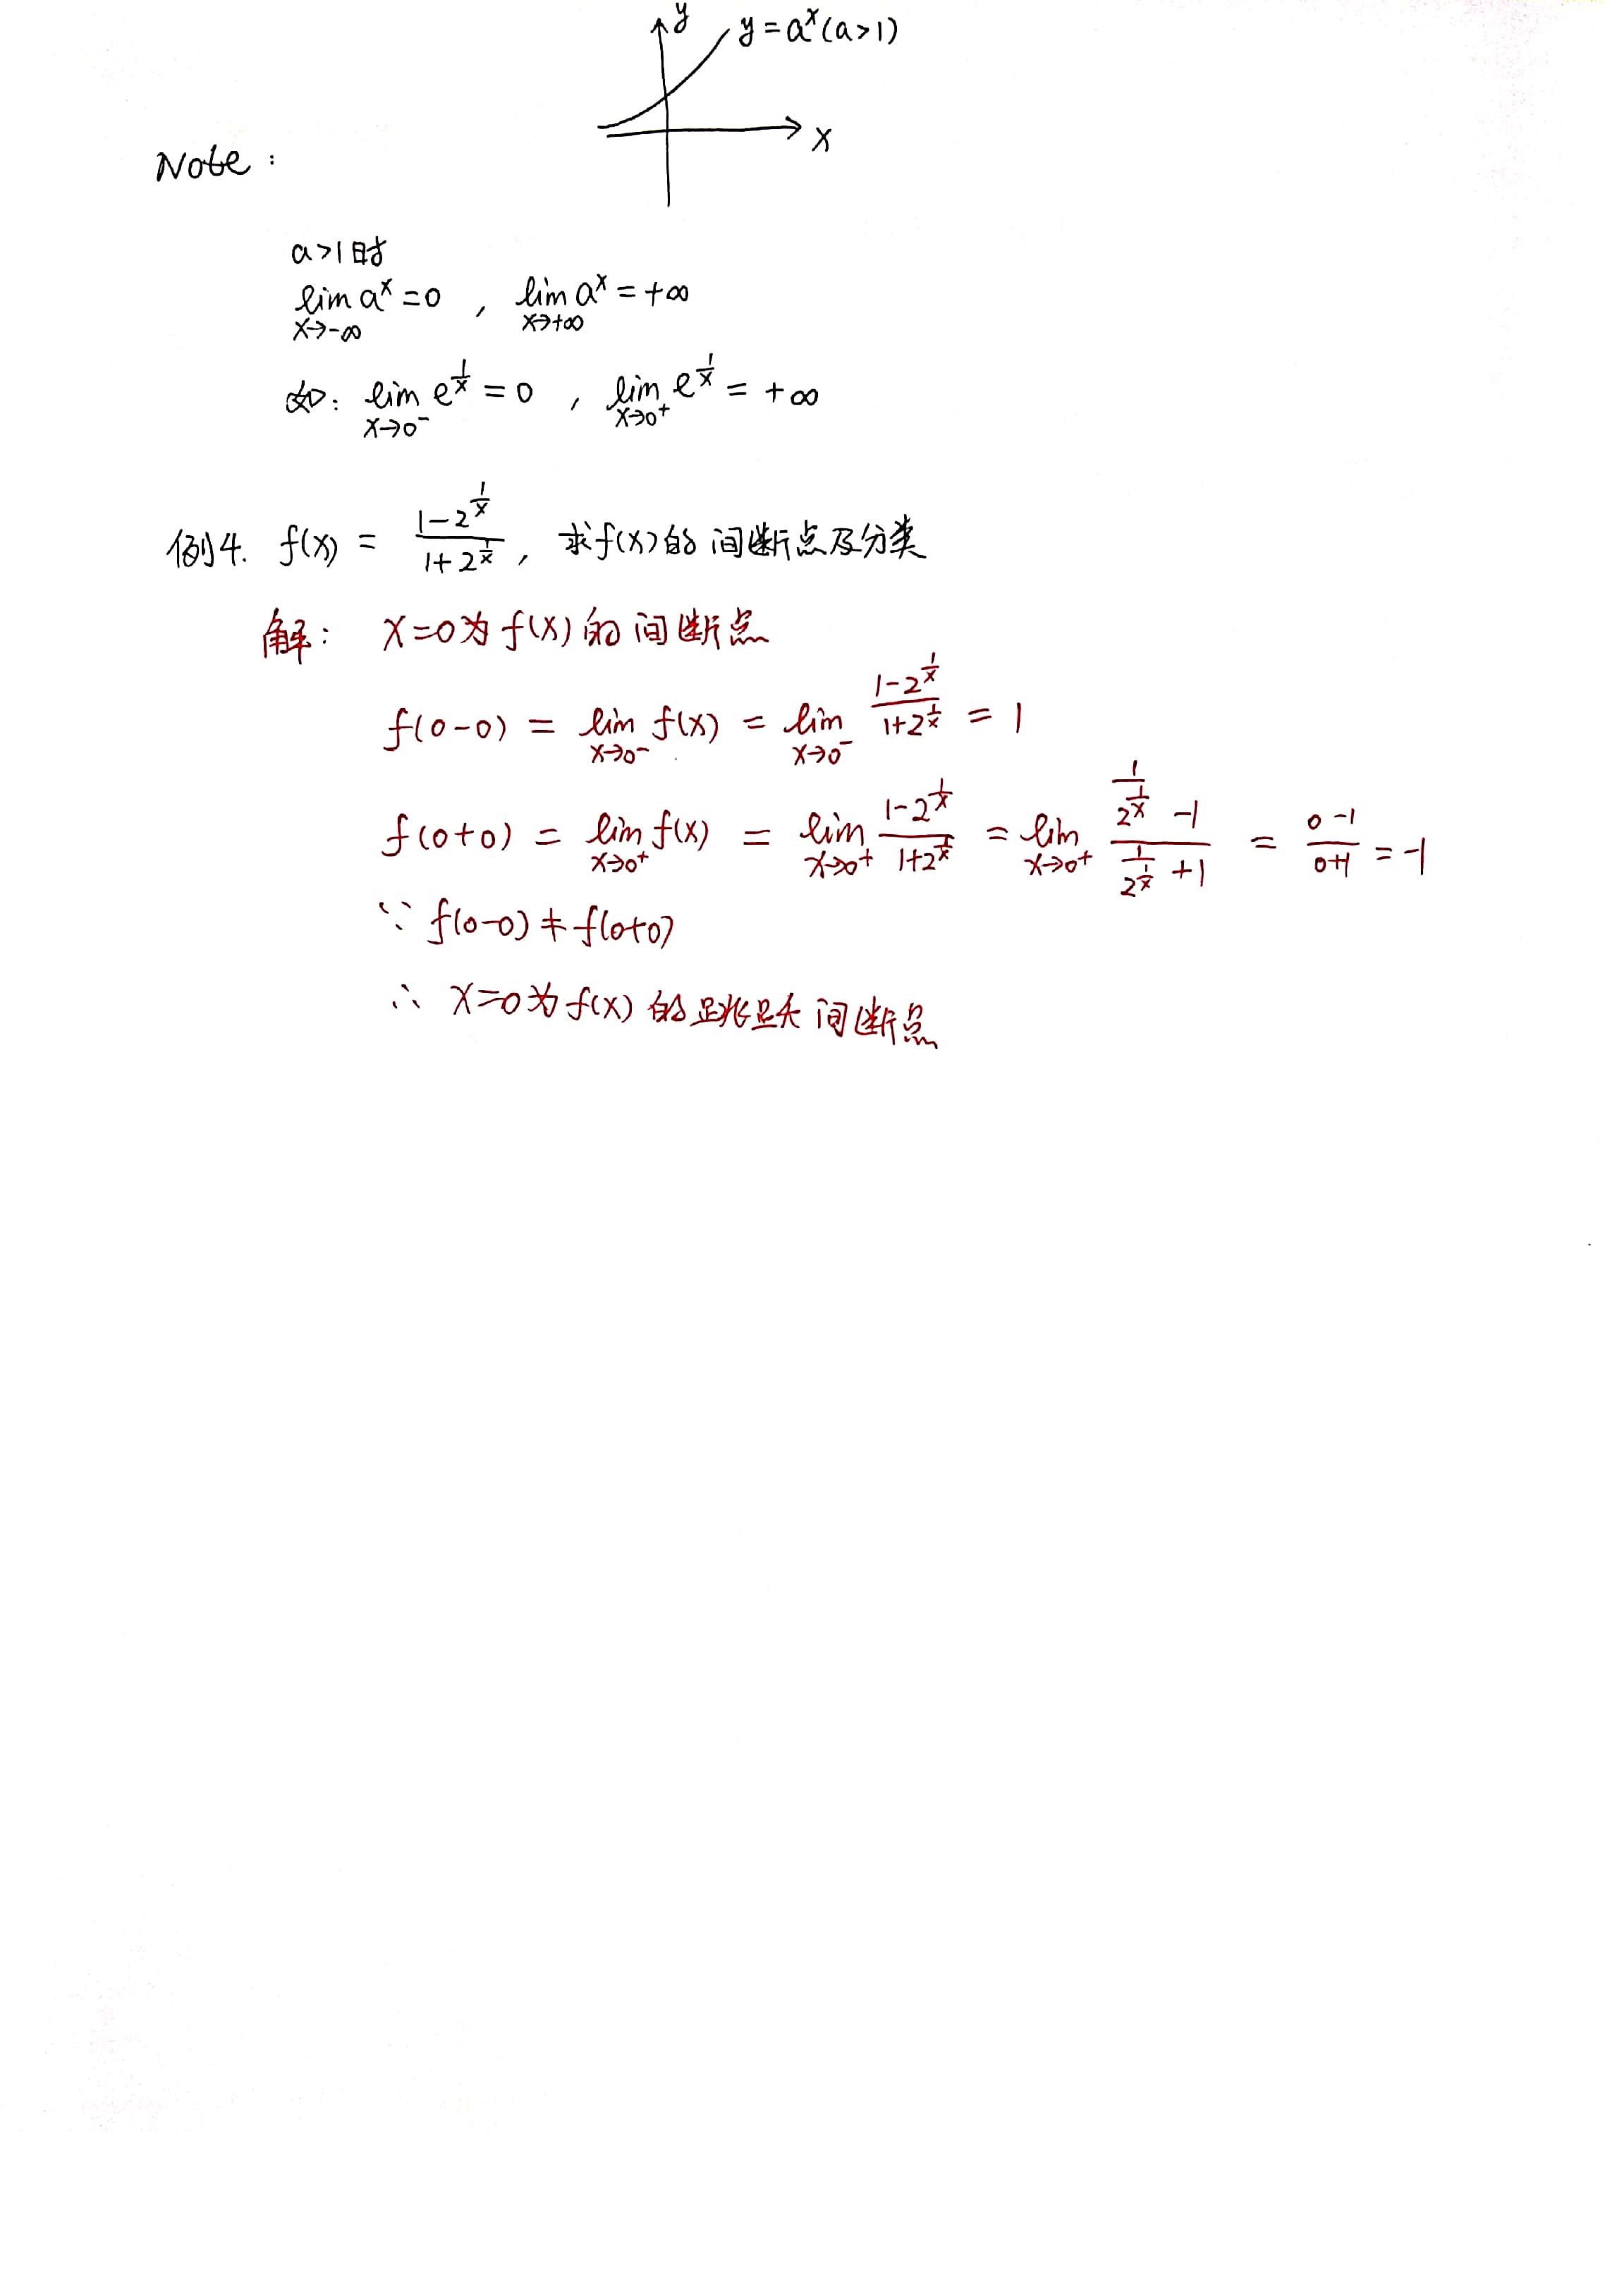 y
y = a^x (a>1)
x
Note:
a>1时
lim_{x→-∞} a^x = 0 , lim_{x→+∞} a^x = +∞
如: lim_{x→0^-} e^{1/x} = 0 , lim_{x→0^+} e^{1/x} = +∞
例4. f(x) = (1-2^{1/x})/(1+2^{1/x}), 求f(x)的间断点及分类
解: x=0为f(x)的间断点
f(0-0) = lim_{x→0^-} f(x) = lim_{x→0^-} (1-2^{1/x})/(1+2^{1/x}) = 1
f(0+0) = lim_{x→0^+} f(x) = lim_{x→0^+} (1-2^{1/x})/(1+2^{1/x}) = lim_{x→0^+} (1/2^{1/x} -1)/(1/2^{1/x} +1) = (0-1)/(0+1) = -1
∵ f(0-0) ≠ f(0+0)
∴ x=0为f(x)的跳跃间断点